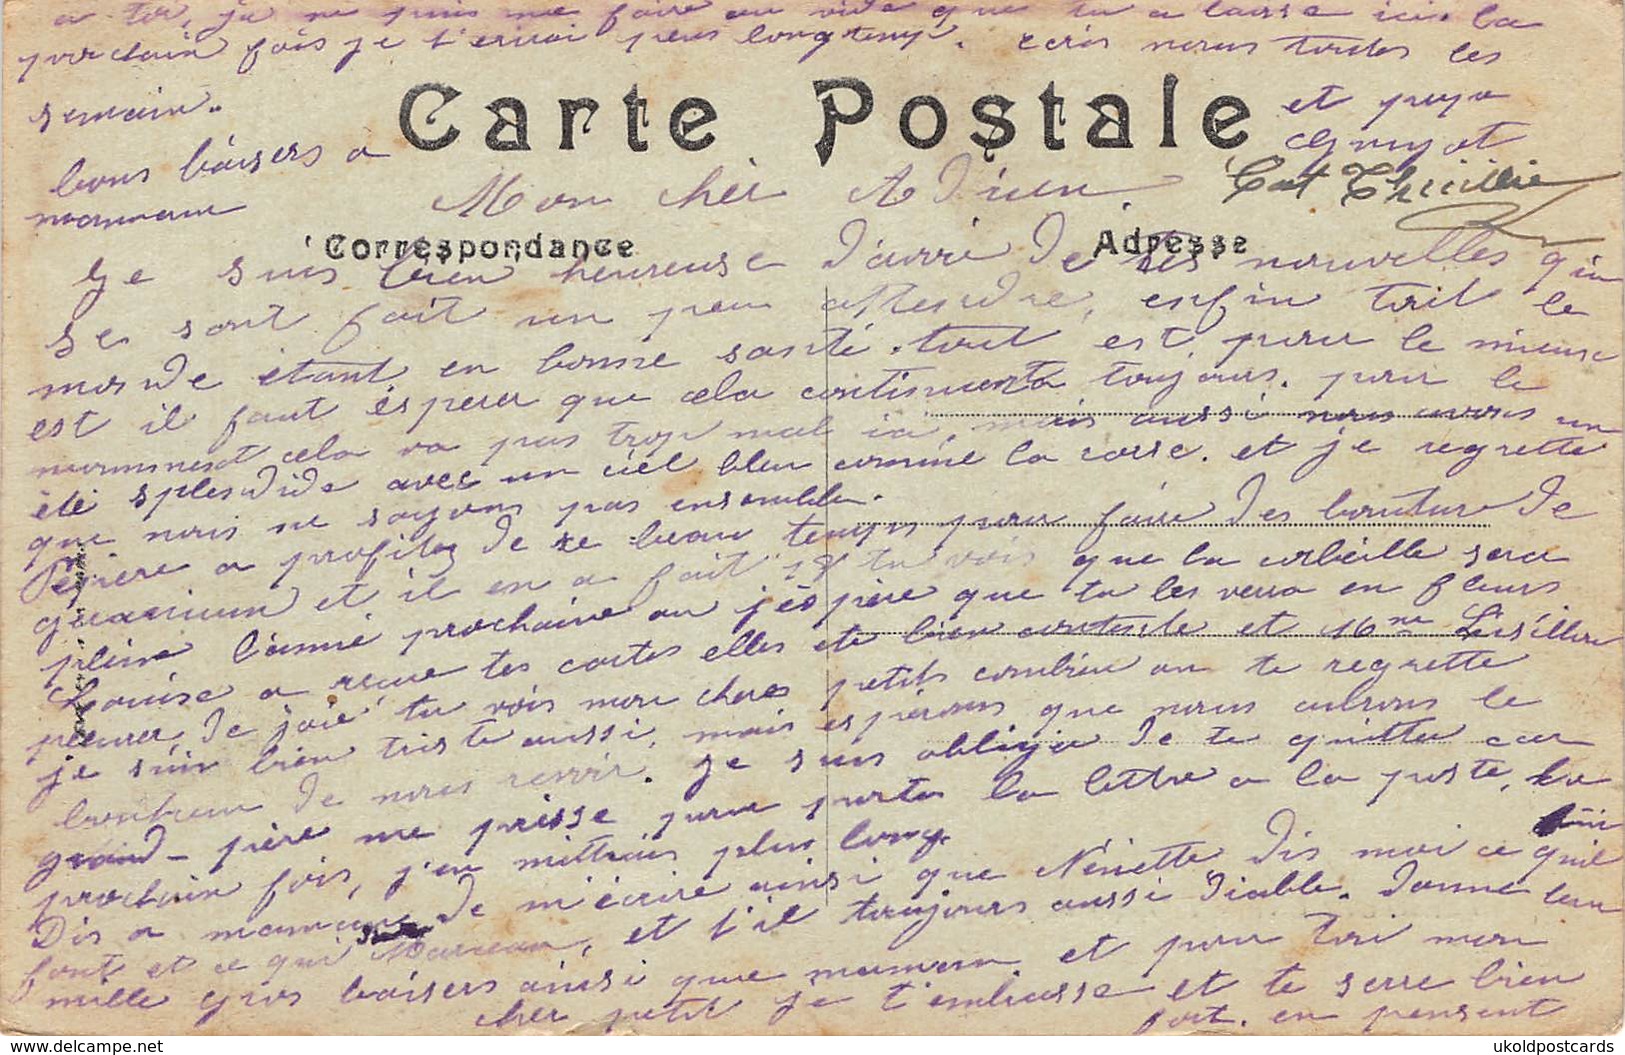 Carte Postale
Correspondance
Adresse
Mon cher Adrien
Je suis bien heureuse d'avoir de tes nouvelles qui
se sont fait un peu attendre, enfin tout le
monde étant en bonne santé. tout est pour le mieux
est il faut esperer que cela continuera toujours. pour le
moment cela va pas trop mal ici, mais aussi nous avons un
été splendide avec un ciel bleu comme la corse. et je regrette
que nous ne soyons pas ensemble.
Pepiere a profitez de ce beau temps pour faire des bouture de
geranium et il en a fait 78 tu vois que la corbeille sera
pleine l'anné prochaine ou j'espère que tu les verra en fleurs
Louise a reçue tes cartes elles été bien contente et Mme
pleurer de joie tu vois mon cher petit combien on te regrette
je suis bien triste aussi, mais espérons que nous aurons le
bonheur de nous revoir. Je suis obliger de te quitter car
grand-père me presse pour porter la lettre a la poste, la
prochain fois, j'en mettrais plus long.
Dis a maman de m'écrire ainsi que Nénette dis moi ce qu'il
font et ce qui Marceau, et s'il toujours aussi diable. donne leur
mille gros baisers ainsi que maman. et pour toi mon
cher petit je t'embrasse et te serre bien
fort. en pensent
a toi, je ne puis me faire au vide que tu a laisse ici. la
prochain fois je t'écrirai plus longtemp. ecris nous toutes les
semain.
bons baisers a
maman
et papa
Guyot